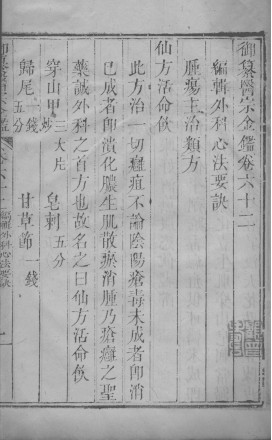 御纂醫宗金鑑卷六十二
編輯外科心法要訣
腫瘍主治類方
仙方活命飲
此方治一切癰疽不論陰陽瘡毒未成者即消
已成者即潰化膿生肌散瘀消腫乃瘡癰之聖
藥誠外科之首方也故名之曰仙方活命飲
穿山甲 三大片 炒 皂刺 五分
歸尾 一錢五分 甘草節 一錢